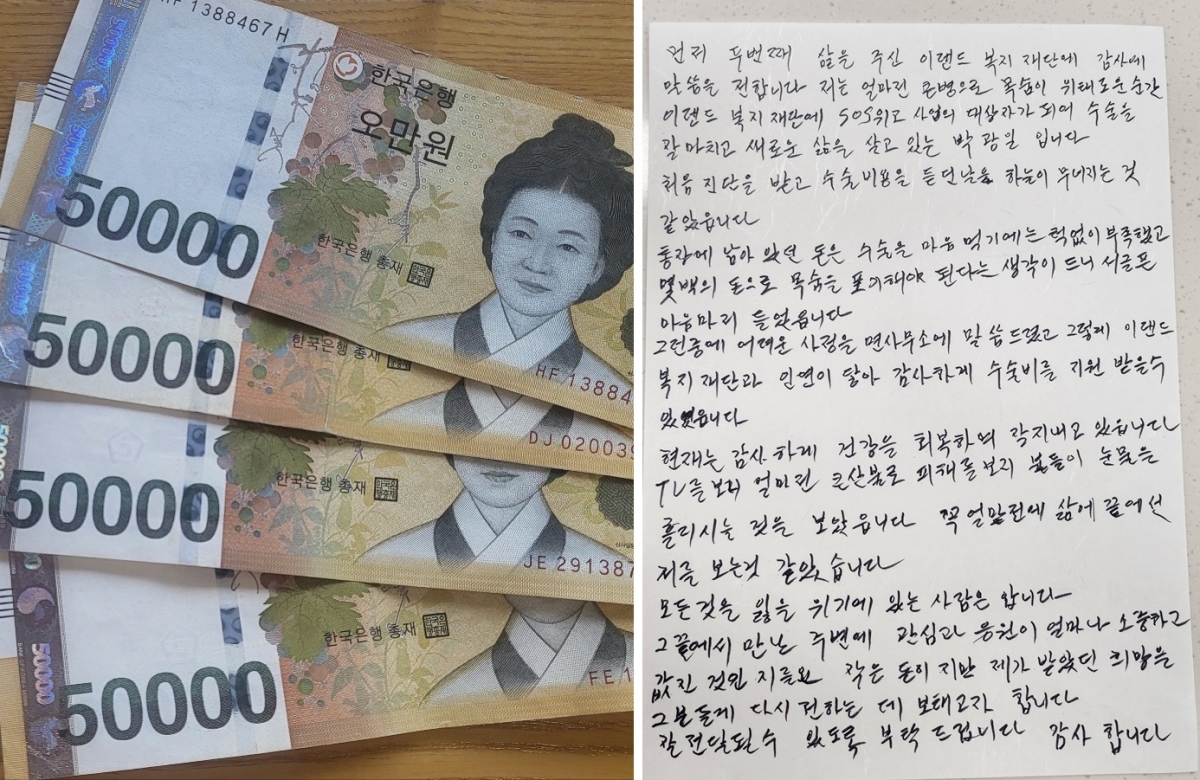 HF 1388467 H
한국은행
오만원
50000
50000
한국은행 총재
HF 13884
50000
한국은행 총재
DJ 020039
50000
한국은행 총재
JE 291387
50000
50000
한국은행 총재
FE 1
먼저 두번째 삶을 주신 이랜드 복지 재단에 감사에
말씀을 전합니다 저는 얼마전 큰병으로 목숨이 위태로운순간
이랜드 복지재단에 SOS위고 사업의 대상자가 되어 수술을
잘마치고 새로운 삶을 살고 있는 박광일 입니다
처음 진단을 받고 수술비용을 듣던날을 하늘이 무너지는 것
같았읍니다
통장에 남아 있던 돈은 수술을 마음 먹기에는 턱없이부족했고
몇백의 돈으로 목숨을 포기해야 된다는 생각이 드니 서글픈
마음마저 들었읍니다
그런중에 어려운 사정을 면사무소에 말씀드렸고 그렇게 이랜드
복지 재단과 인연이 닿아 감사하게 수술비를 지원 받을수
있었읍니다
현재는 감사하게 건강을 회복하며 잘지내고 있읍니다
TV를보니 얼마전 큰산불로 피해를보신 분들이 눈물을
흘리시는 것을 보았읍니다 꼭얼마전에 삶에 끝에선
저를 보는것 같았습니다
모든것을 잃을 위기에 있는 사람은 압니다
그끝에서 만난 주변에 관심과 응원이 얼마나 소중하고
값진 것인지를요 작은 돈이지만 제가 받았던 희망을
그분들께 다시 전하는 데 보태고자 합니다
잘전달될수 있도록 부탁 드립니다 감사 합니다